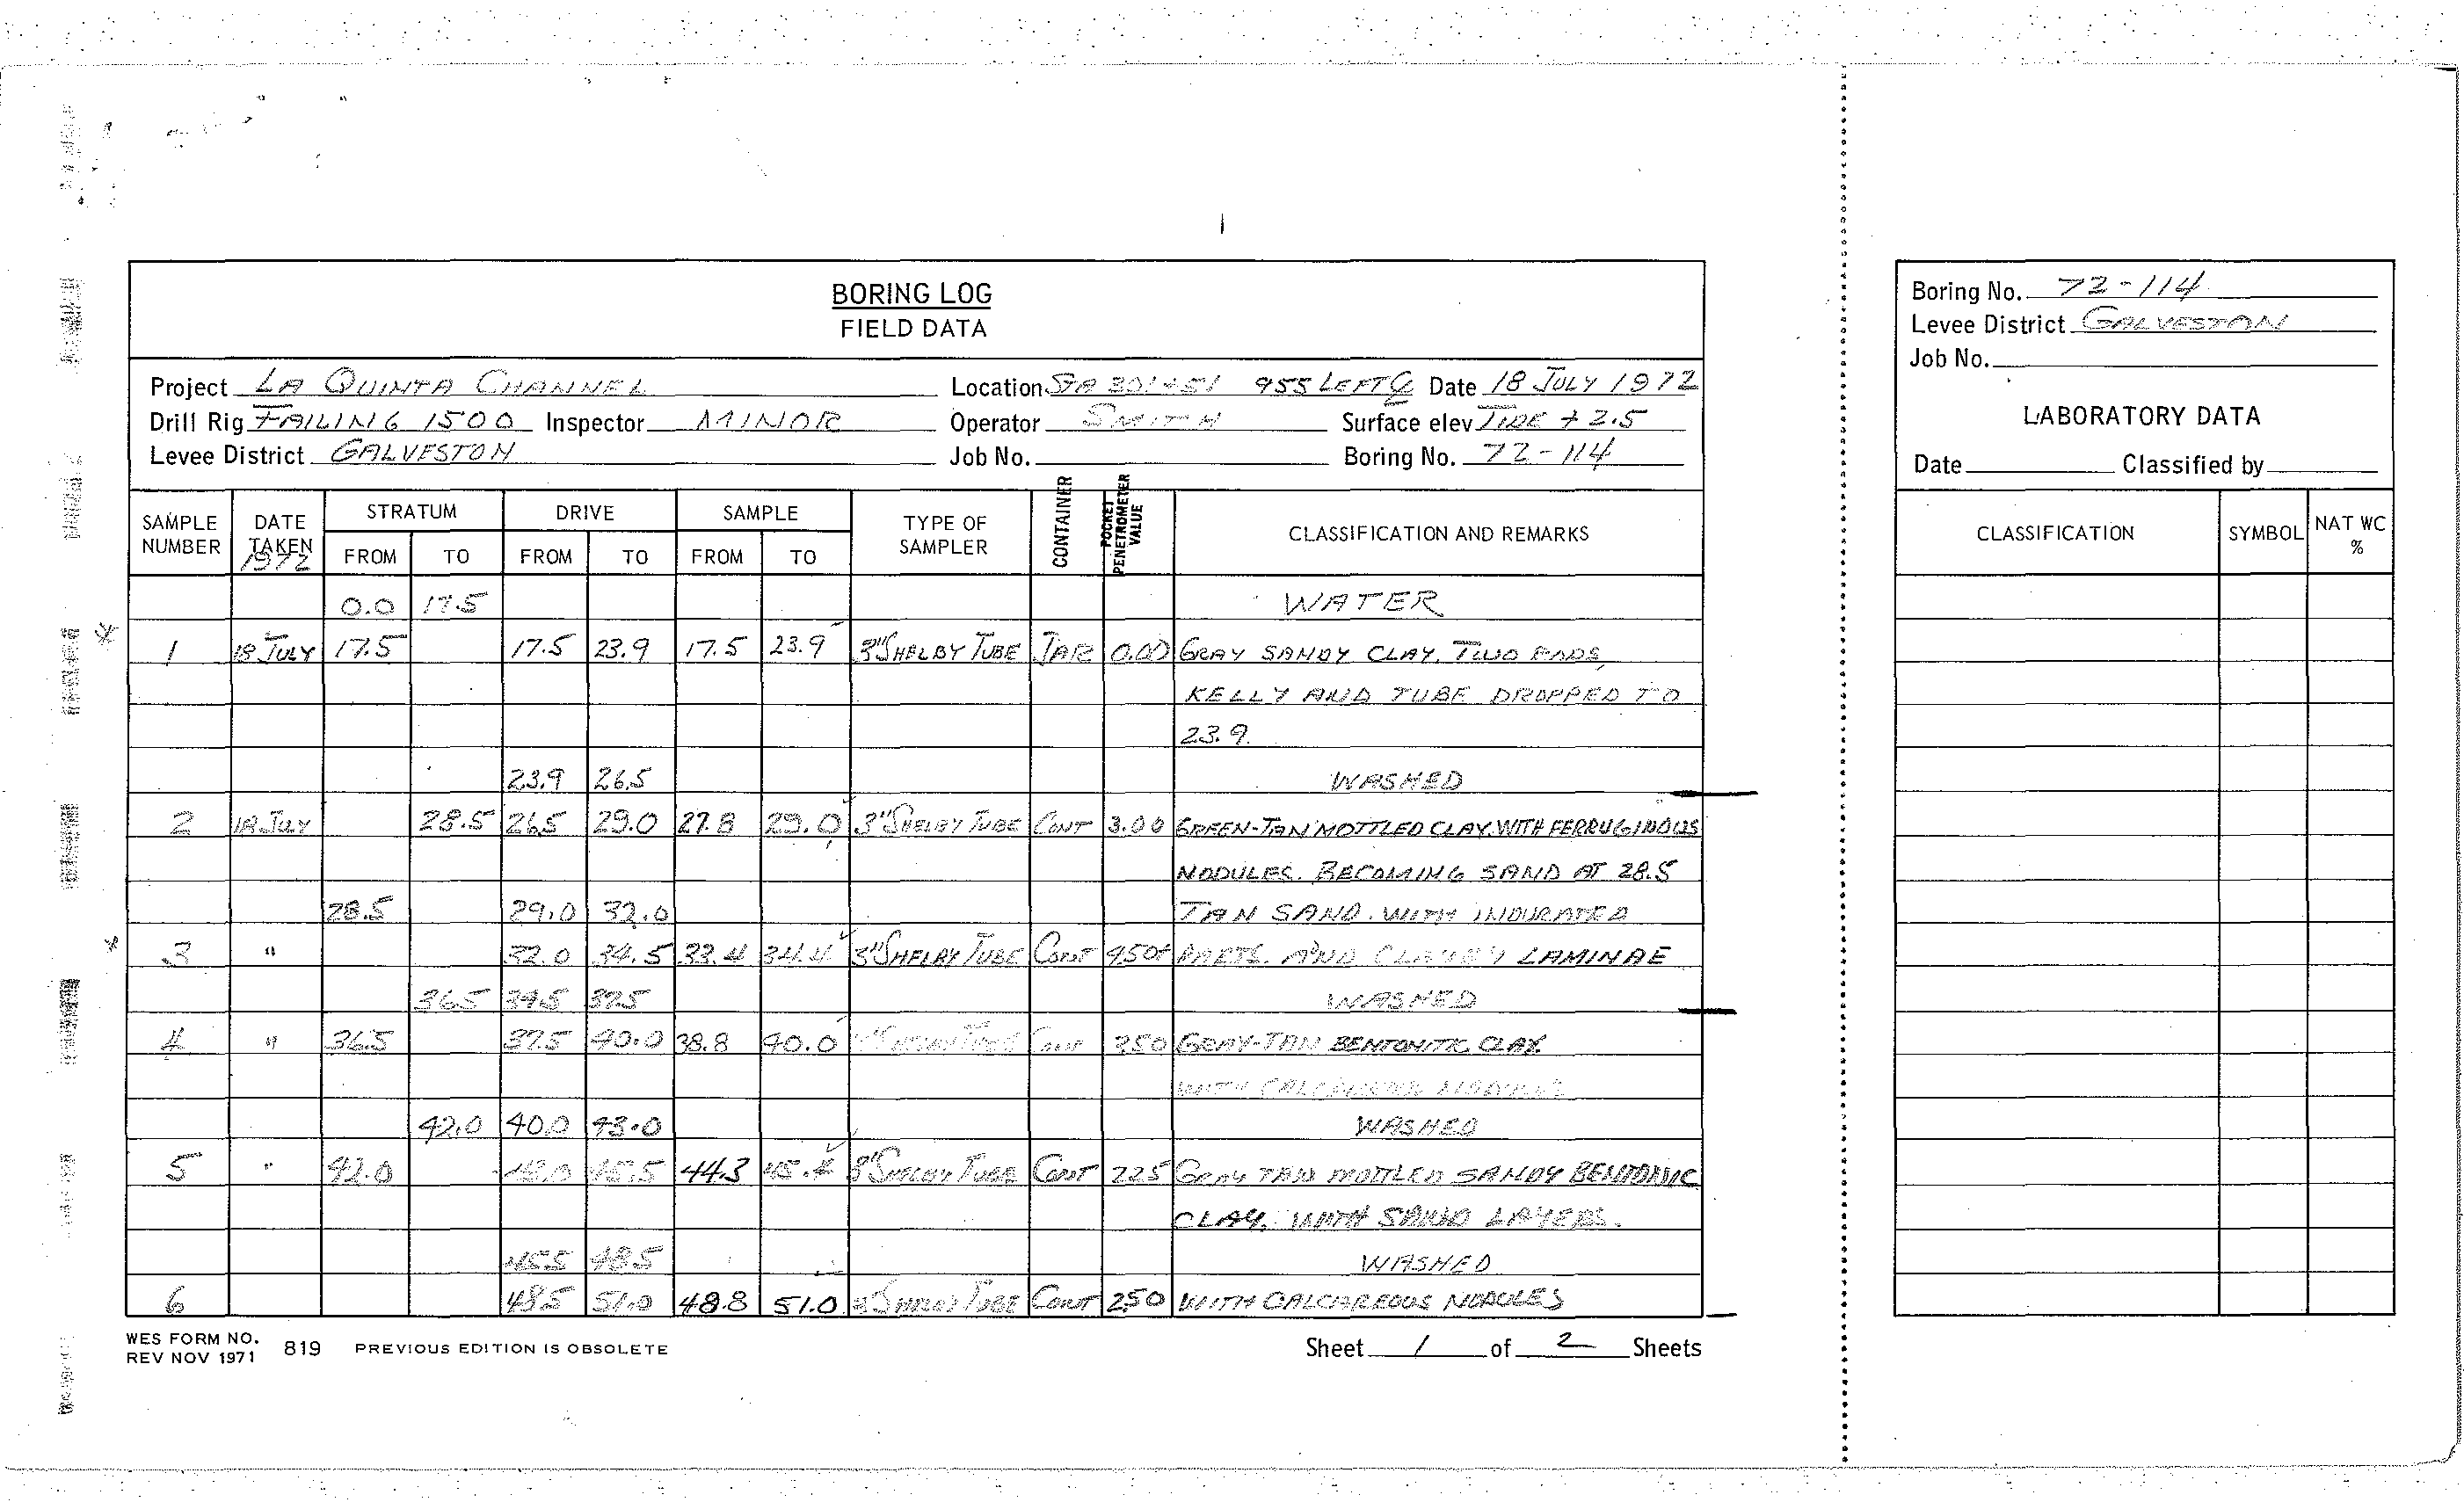 BORING LOG
FIELD DATA
Project LA QUINTA CHANNEL Location STA 301+51 955 LEFT ℄ Date 18 JULY 1972
Drill Rig FAILING 1500 Inspector MINOR Operator SMITH Surface elev TIDE + 2.5
Levee District GALVESTON Job No. Boring No. 72-114
SAMPLE NUMBER DATE TAKEN 1972 STRATUM FROM TO DRIVE FROM TO SAMPLE FROM TO TYPE OF SAMPLER CONTAINER POCKET PENETROMETER VALUE CLASSIFICATION AND REMARKS
0.0 17.5 WATER
* 1 18 JULY 17.5 17.5 23.9 17.5 23.9 3" SHELBY TUBE JAR 0.00 GRAY SANDY CLAY. TWO ENDS,
KELLY AND TUBE DROPPED TO
23.9.
23.9 26.5 WASHED
2 18 JULY 28.5 26.5 29.0 27.8 29.0 3" SHELBY TUBE CONT 3.00 GREEN-TAN MOTTLED CLAY. WITH FERRUGINOUS
NODULES. BECOMING SAND AT 28.5
28.5 29.0 32.0 TAN SAND. WITH INDURATED
* 3 " 32.0 34.5 33.4 34.4 3" SHELBY TUBE CONT 4.50+ PARTS. AND CLAYEY LAMINAE
36.5 34.5 37.5 WASHED
4 " 36.5 37.5 40.0 38.8 40.0 3" SHELBY TUBE CONT 250 GRAY-TAN BENTONITIC CLAY.
WITH CALCAREOUS NODULES
42.0 40.0 43.0 WASHED
5 " 42.0 43.0 45.5 44.3 45.4 3" SHELBY TUBE CONT 225 GRAY TAN MOTTLED SANDY BENTONITIC
CLAY. WITH SAND LAYERS.
45.5 48.5 WASHED
6 48.5 51.0 48.8 51.0 3" SHELBY TUBE CONT 2.50 WITH CALCAREOUS NODULES
WES FORM NO. 819 PREVIOUS EDITION IS OBSOLETE
REV NOV 1971
Sheet 1 of 2 Sheets
Boring No. 72-114
Levee District GALVESTON
Job No.
LABORATORY DATA
Date Classified by
CLASSIFICATION SYMBOL NAT WC %